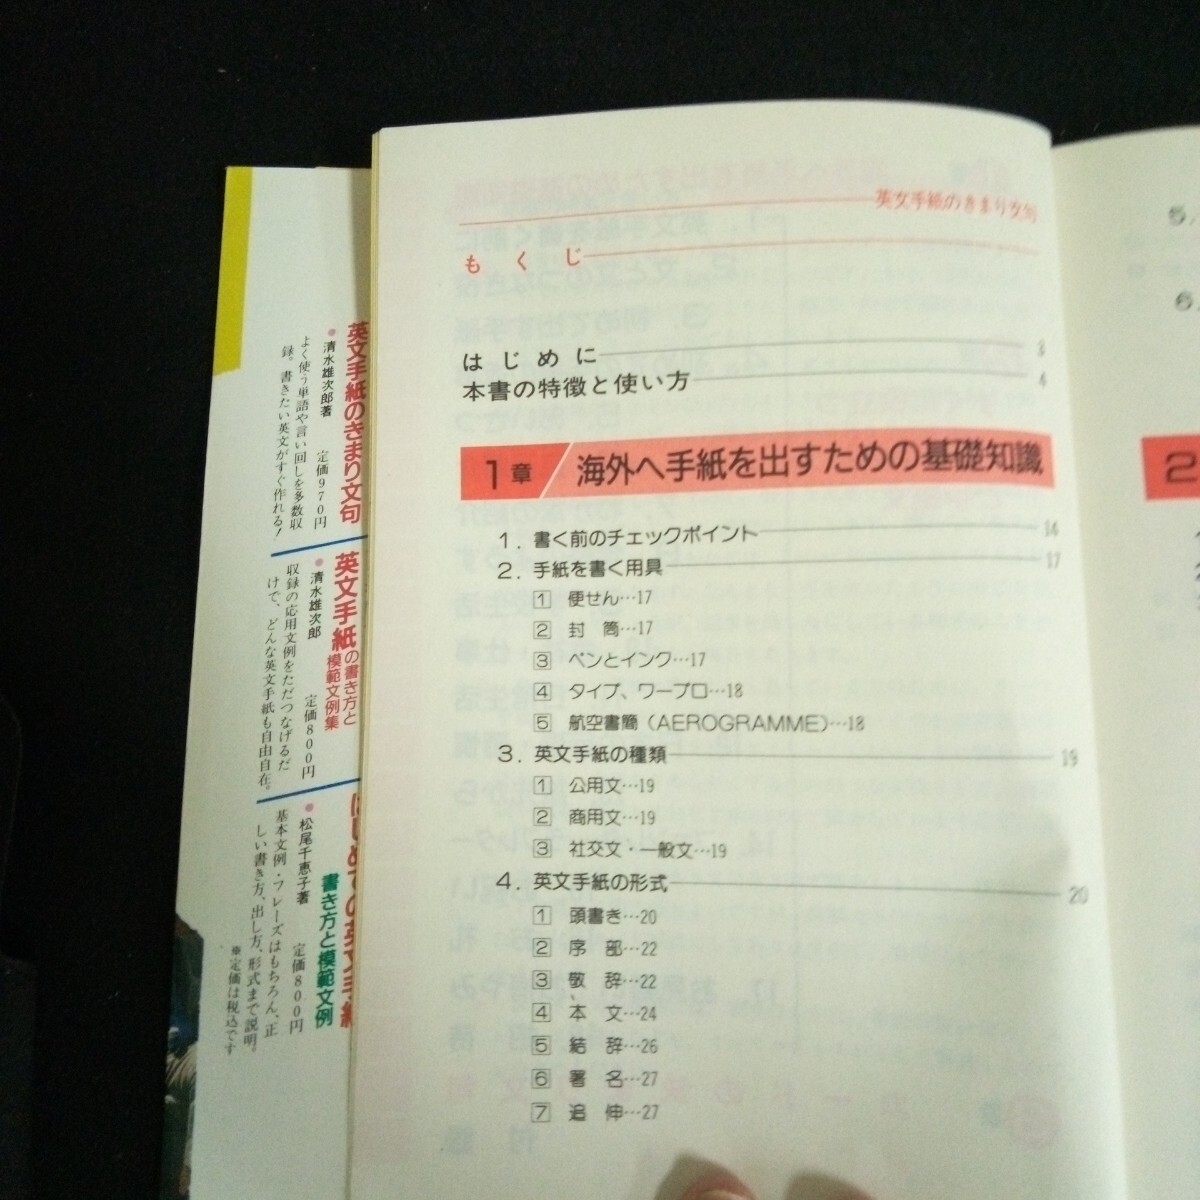 英文手紙のきまり文句
もくじ
はじめに 3
本書の特徴と使い方 4
1章 海外へ手紙を出すための基礎知識
1. 書く前のチェックポイント 14
2. 手紙を書く用具 17
1 便せん…17
2 封筒…17
3 ペンとインク…17
4 タイプ、ワープロ…18
5 航空書簡(AEROGRAMME)…18
3. 英文手紙の種類 19
1 公用文…19
2 商用文…19
3 社交文・一般文…19
4. 英文手紙の形式 20
1 頭書き…20
2 序部…22
3 敬辞…22
4 本文…24
5 結辞…26
6 署名…27
7 追伸…27
5.
6.
2
英文手紙のきまり文句
●清水雄次郎著 定価970円
よく使う単語や言い回しを多数収
録。書きたい英文がすぐ作れる!
英文手紙の書き方と模範文例集
●清水雄次郎 定価800円
収録の応用文例をただつなげるだ
けで、どんな英文手紙も自由自在。
はじめての英文手紙
書き方と模範文例
●松尾千恵子著 定価800円
基本文例・フレーズはもちろん、正
しい書き方、出し方、形式まで説明。
※定価は税込です